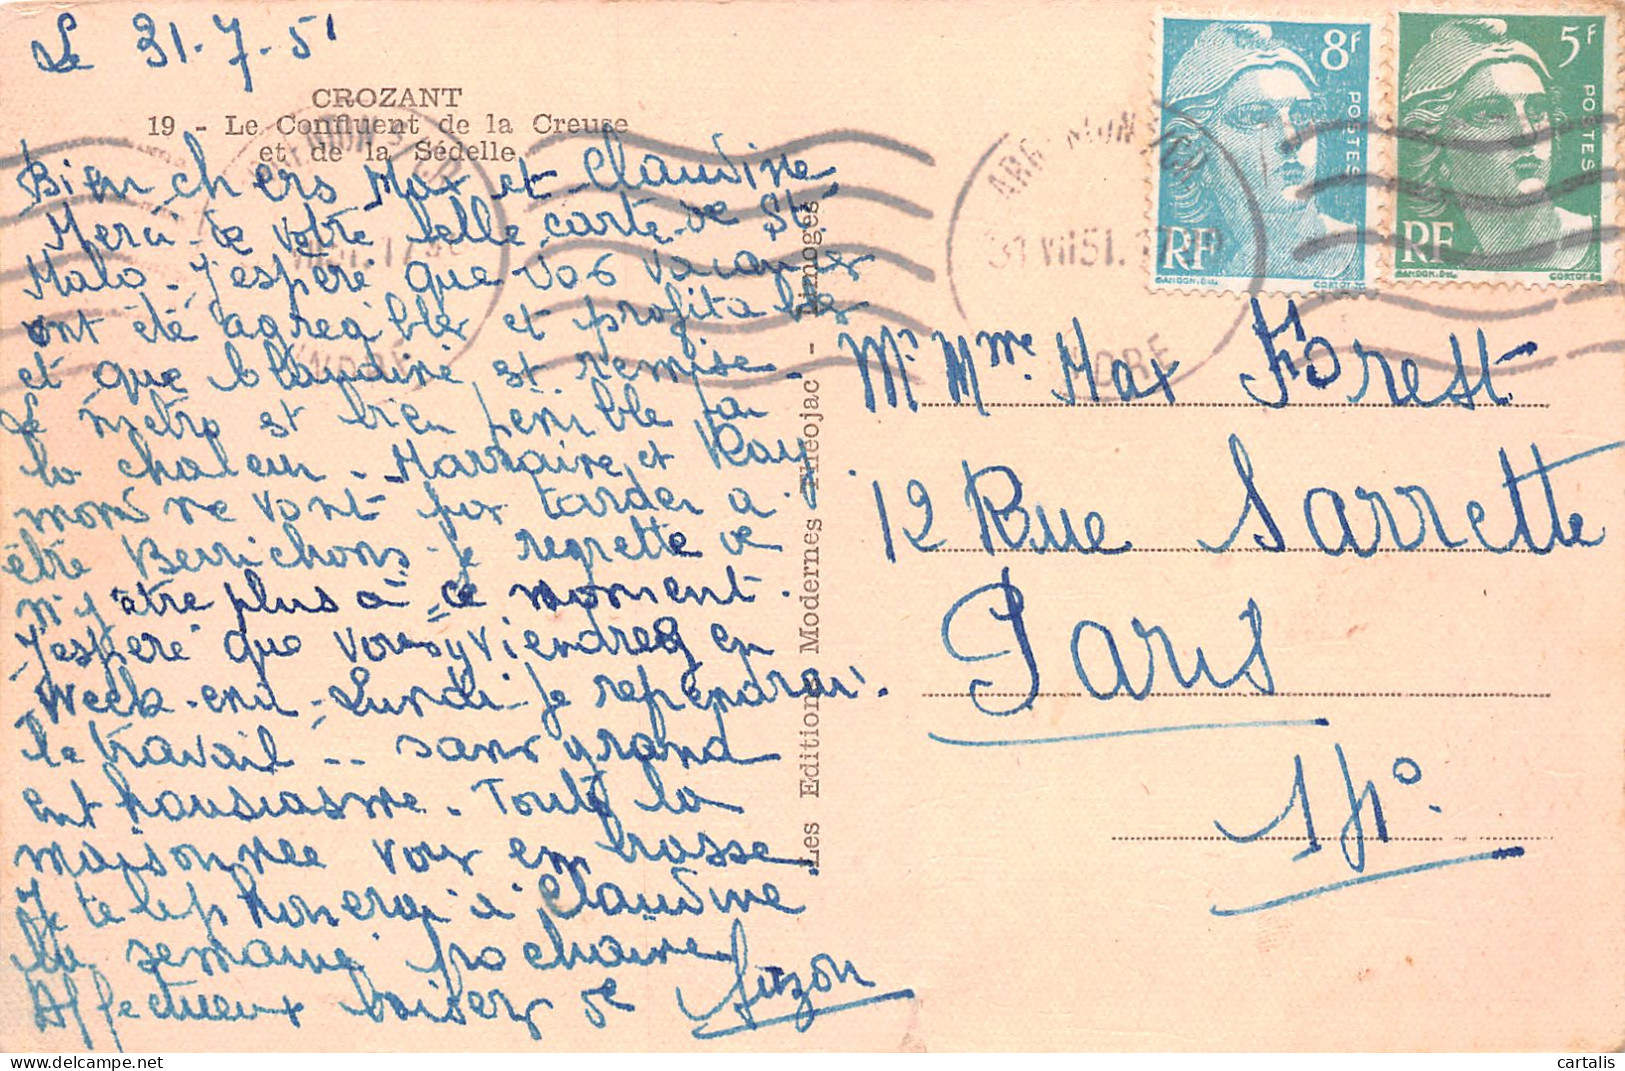 Le 31-7-51
CROZANT
19 - Le Confluent de la Creuse
et de la Sédelle
Bien chers Max et Claudine
Merci de votre belle carte de St
Malo. J'espère que vos vacances
ont été agréables et profitables
et que Claudine est remise -
Le métro est bien pénible par
la chaleur - Marraine et Ray
mond ne vont pas tarder à
être Berrichons - Je regrette de
n'y être plus à ce moment.
J'espère que vous y viendrez en
Week-end - Lundi je reprendrai
le travail -- sans grand
enthousiasme. Toute la
maisonnée vous embrasse
Je téléphonerai à Claudine
la semaine prochaine
Affectueux baisers de Suzon
Les Editions Modernes Théojac - Limoges
8F
POSTES
RF
GANDON.DEL
CORTOT.SC
5F
POSTES
RF
GANDON.DEL
CORTOT.SC
31 VII 51.
INDRE
Mr Mme Max Forest
12 Rue Sarrette
Paris
14º.
cartalis